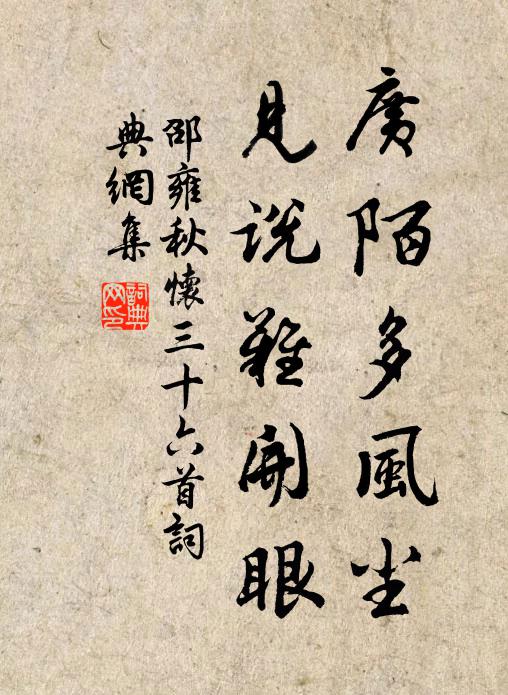 廣陌多風尘
見說難開眼
邵雍秋懷三十六首詞
典網集
詞典网印